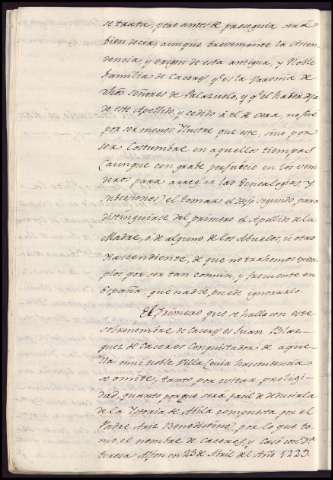 se trata, pero antes de proseguir será
bien decir aunque brevemente la Ascen-
dencia y origen de esta antigua, y Noble
familia de Caceres qe. es la Varonia de
Sres. señores de Palazuelo, y qe. el haber dejado
este Apellido, y cedido à el de no fue
por ser menos ilustre que este, sino por
ser Costumbre en aquellos tiempos
(aunque con grabe perjuicio en los veni-
deros para averiguar las Genealogias y
subcesiones) el tomar el hijo segundo para
distinguirse del primero el Apellido de la
Madre, ò de alguno de los Abuelos, ù otro
Ascendiente, de que no trahemos exem-
plos por ser tan comun, y frecuente en
España, que nadie puede ignorarlo.
El Primero que se halla con este
sobrenombre de Caceres es Juan Blaz-
quez de Caceres Conquistador de aque-
lla mui noble Villa cuia
se omite, tanto por evitar prolixi-
dad, quanto porque será facil de
de la Istoria de Avila compuesta por el
Padre Ariz Benedictino, por lo que to-
mó el nombre de Caceres, y Casó con Da.
teresa Alfon en 23 de Abril del Año 1229.